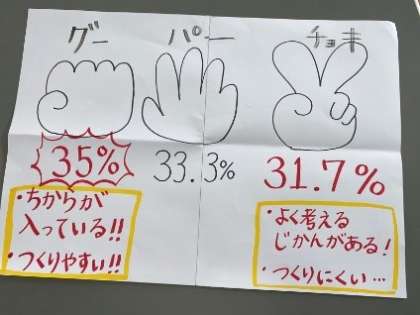 グー パー チョキ
35% 33.3% 31.7%
・ちからが
入っている!!
・つくりやすい!!
・よく考える
じかんがある!
・つくりにくい…